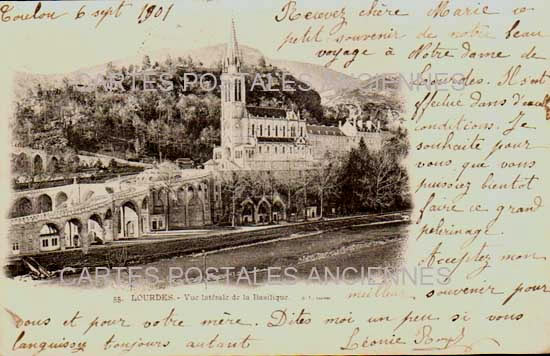 Toulon 6 sept 1901
Recevez chère Marie ce
petit souvenir de notre beau
voyage à Notre dame de
Lourdes. Il s'est
effectué dans d'excell
conditions. Je
souhaite pour
vous que vous
puissiez bientôt
faire ce grand
pélerinage.
Acceptez mon
meilleur souvenir pour
vous et pour votre mère. Dites moi un peu si vous
languissez toujours autant
Léonie
CARTES POSTALES ANCIENNES
CARTES POSTALES ANCIENNES
55. - LOURDES. - Vue latérale de la Basilique.